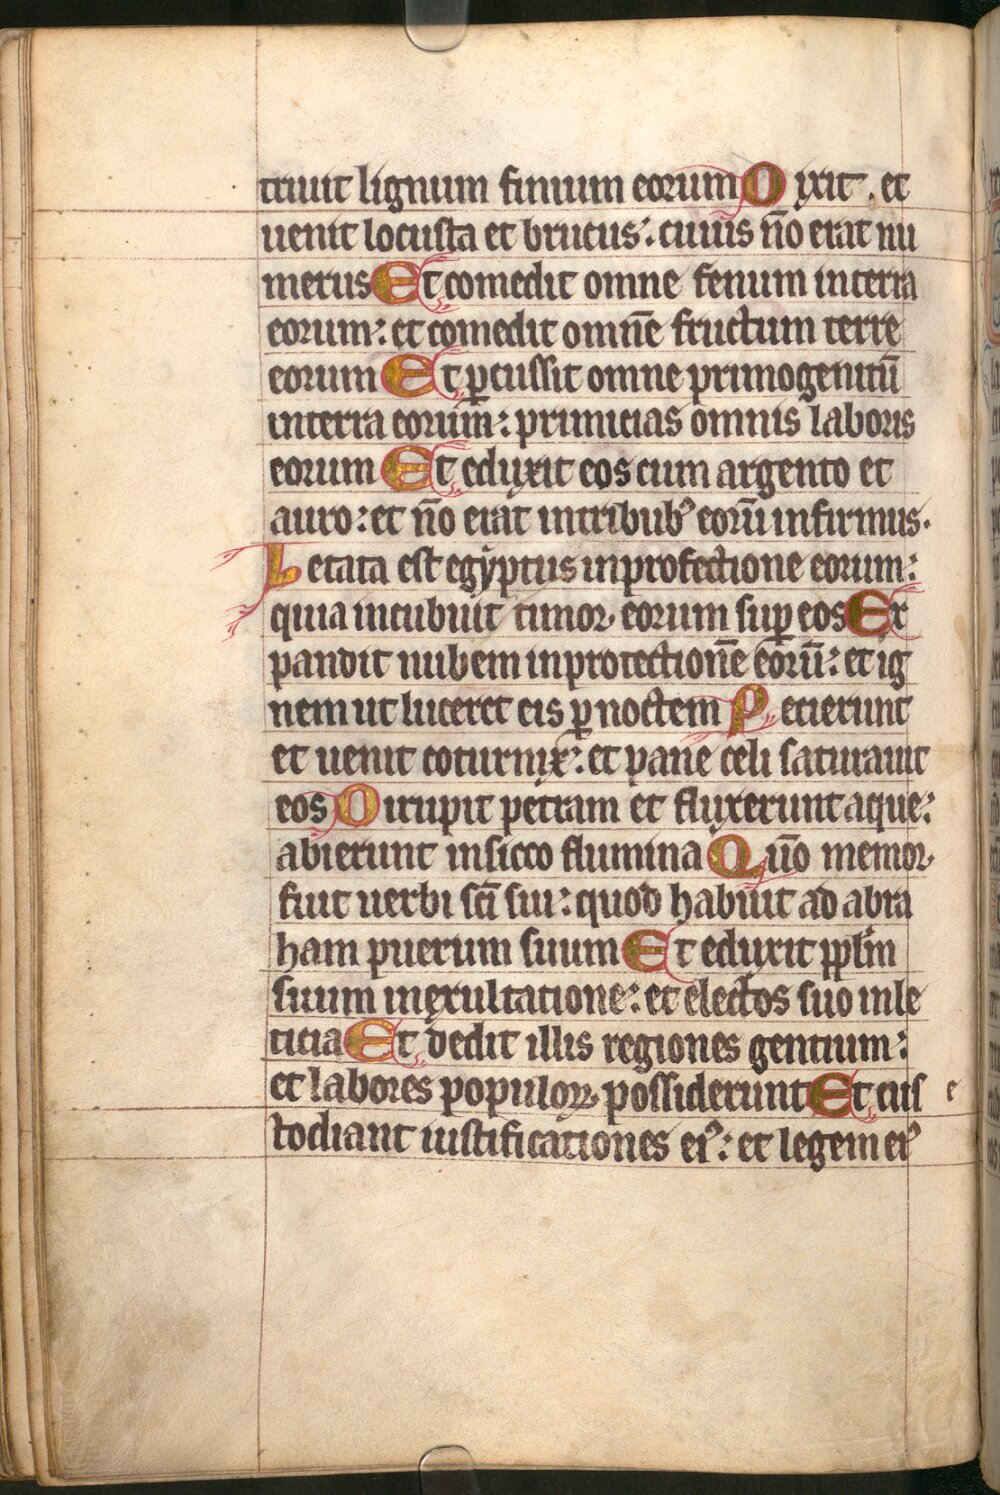 triuit lignum finium eorum Dixit. et
uenit locusta et brucus: cuius nō erat nu
merus Et comedit omne fenum interra
eorum: et comedit omnē fructum terre
eorum Et ꝑcussit omne primogenitū
interra eorum: primicias omnis laboris
eorum Et eduxit eos cum argento et
auro: et nō erat intribubꝰ eorū infirmus.
Letata est egyptus inprofectione eorum:
quia incubuit timor eorum suꝑ eos Ex
pandit nubem inprotectionē eorū: et ig
nem ut luceret eis ꝑ noctem Petierunt
et uenit coturnix: et pane celi saturauit
eos Dirupit petram et fluxerunt aque:
abierunt insicco flumina Quō memor
fuit uerbi scī sui: quod habuit ad abra
ham puerum suum Et eduxit pplm̄
suum inexultatione: et electos suo inle
ticia Et dedit illis regiones gentium:
et labores populoꝝ possiderunt Et cus e
todiant iustificationes eiꝰ: et legem eiꝰ